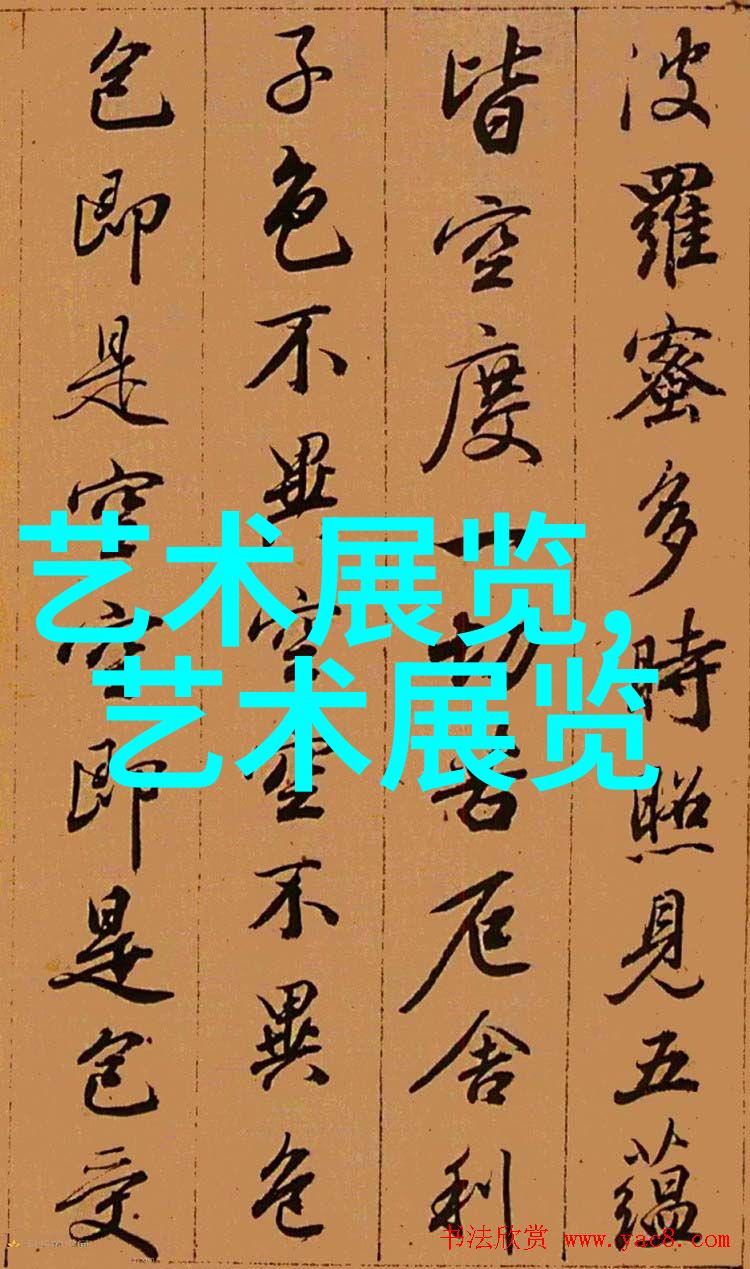 波羅蜜多時照見五蘊
皆空度一切苦厄舍利
子色不異空空不異色
色即是空空即是色受
艺术展览,
艺术展览
书法欣赏 www.yac8.com